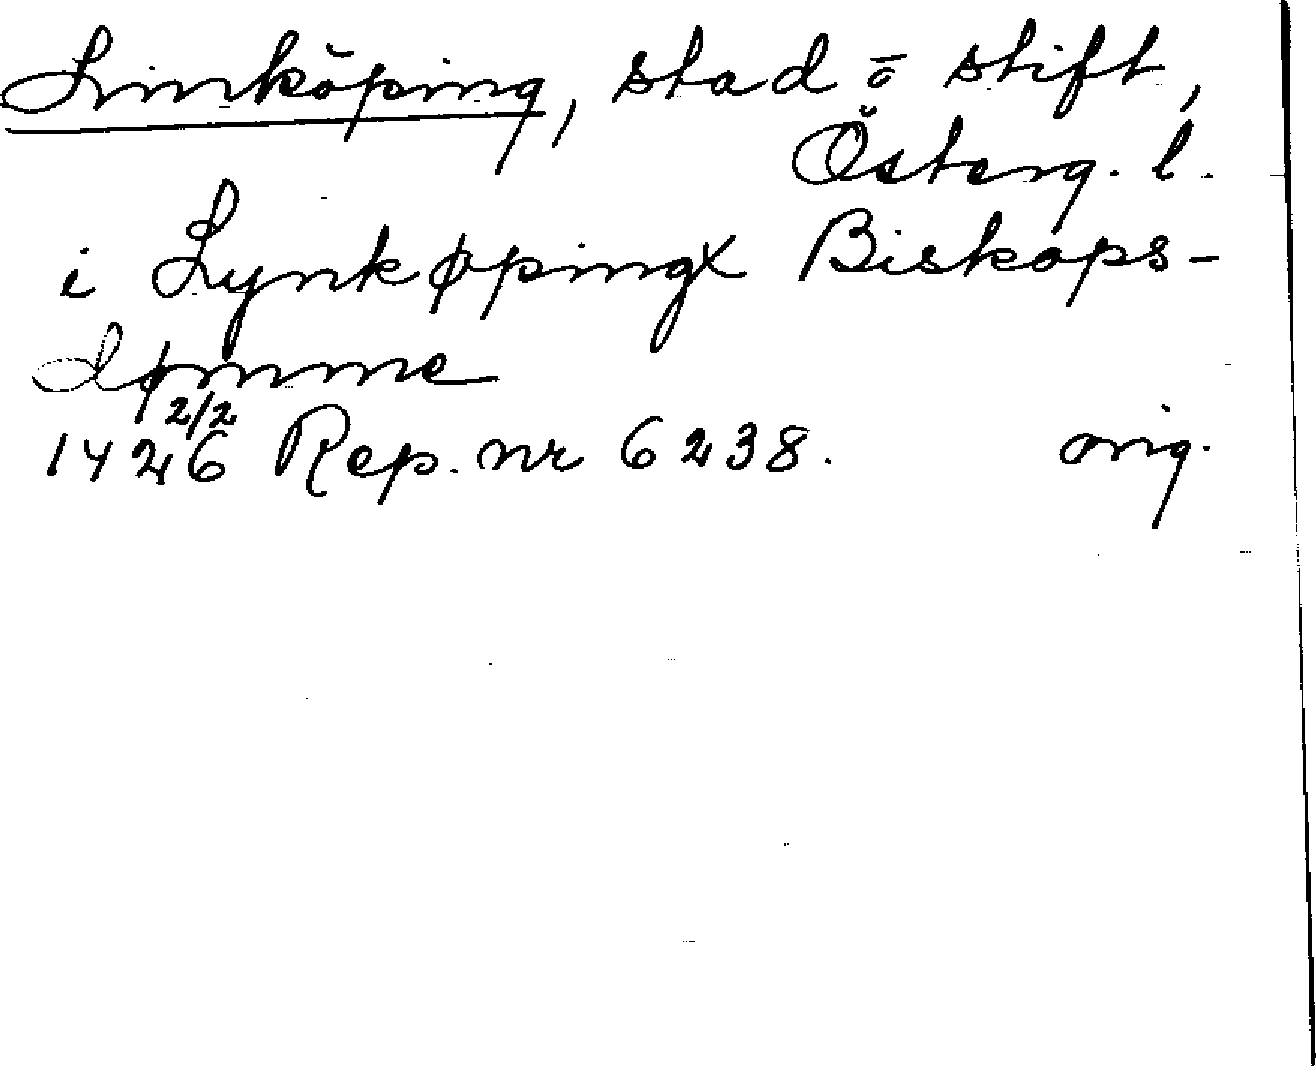 Linköping, stad o stift,
Österg. l.
i Lynkøpingx Biskops-
dømme
2/2
1426 Rep. nr 6238. orig.